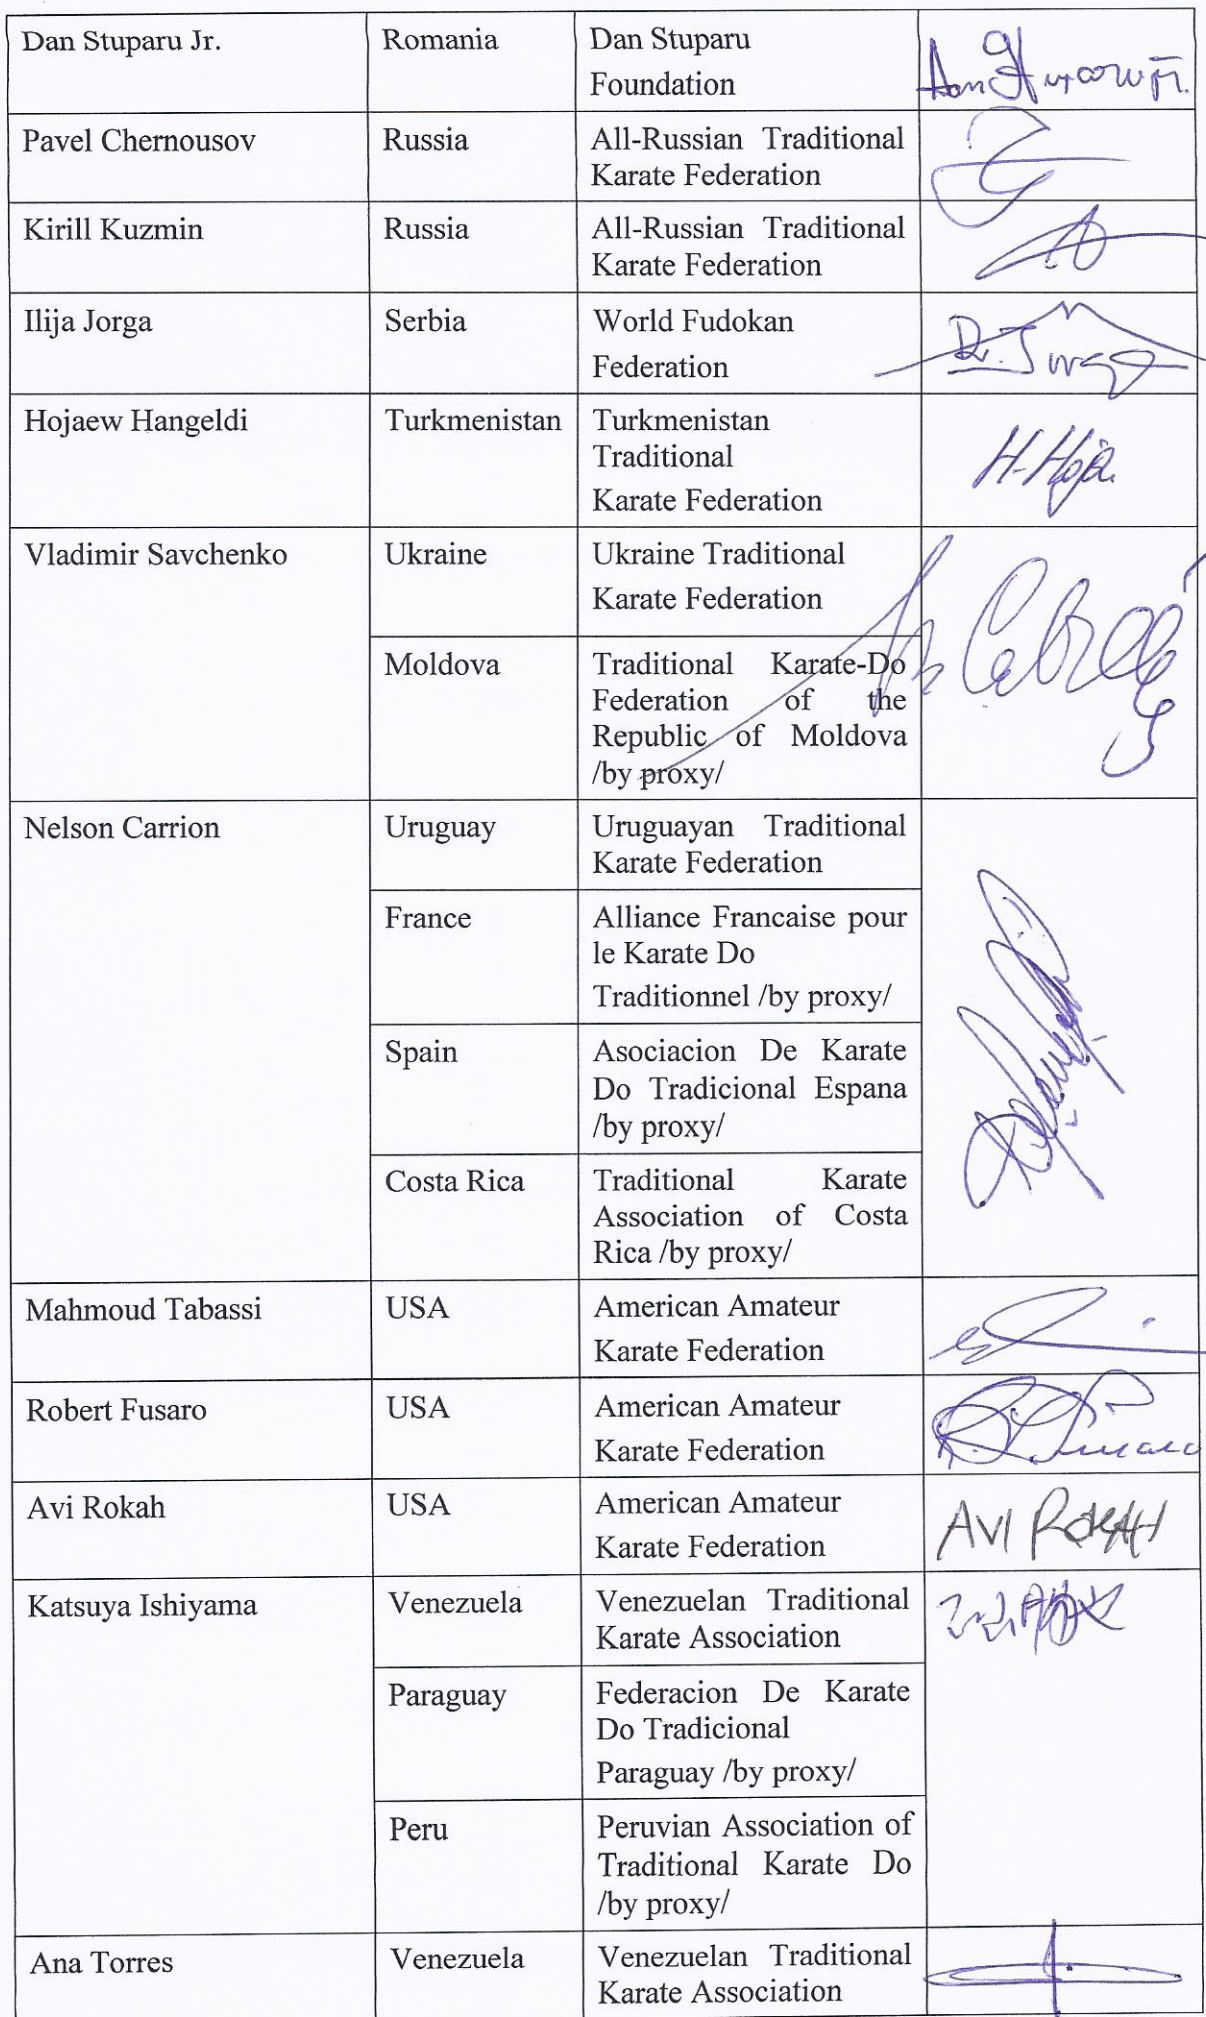 Dan Stuparu Jr.
Romania
Dan Stuparu
Foundation
Pavel Chernousov
Russia
All-Russian Traditional
Karate Federation
Kirill Kuzmin
Russia
All-Russian Traditional
Karate Federation
Ilija Jorga
Serbia
World Fudokan
Federation
Dr. Jorga
Hojaew Hangeldi
Turkmenistan
Turkmenistan
Traditional
Karate Federation
H-Hoja
Vladimir Savchenko
Ukraine
Ukraine Traditional
Karate Federation
Moldova
Traditional Karate-Do
Federation of the
Republic of Moldova
/by proxy/
Nelson Carrion
Uruguay
Uruguayan Traditional
Karate Federation
France
Alliance Francaise pour
le Karate Do
Traditionnel /by proxy/
Spain
Asociacion De Karate
Do Tradicional Espana
/by proxy/
Costa Rica
Traditional Karate
Association of Costa
Rica /by proxy/
Mahmoud Tabassi
USA
American Amateur
Karate Federation
Robert Fusaro
USA
American Amateur
Karate Federation
Avi Rokah
USA
American Amateur
Karate Federation
AVI ROKAH
Katsuya Ishiyama
Venezuela
Venezuelan Traditional
Karate Association
Paraguay
Federacion De Karate
Do Tradicional
Paraguay /by proxy/
Peru
Peruvian Association of
Traditional Karate Do
/by proxy/
Ana Torres
Venezuela
Venezuelan Traditional
Karate Association